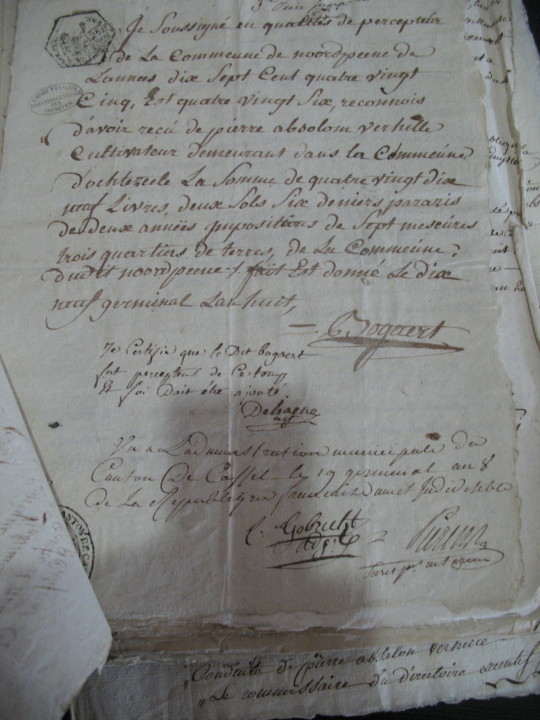 Je soussigné en qualités de percepteur
de La Commeune de noordpeene de
Lannées dix Sept Cent quatre vingt
Cinq, Est quatre vingt Six, reconnois
d'avoir recu de pierre absolom verhille
Cultivateur demeurant dans la Commeune
d'ochtezeele La Somme de quatre vingt dix
neuf Livres, deux Sols Six deniers parazis
de deux années impositions de Sept mesures
trois quartiers de terres, de La Commeune
dudit noordpeene fait Est donné Le dix
neuf germinal Lan huit,
Bogaert
Je Certifie que le Dit bogaert
fut percepteur de Ce temps
Et foi Doit être ajouté
Vu a L'administration municipale du
Canton De Cassel le 19 germinal an 8
de La Republique francaise une et Indivisible
Conduite de pierre absolon
Le commissaire du directoire executif